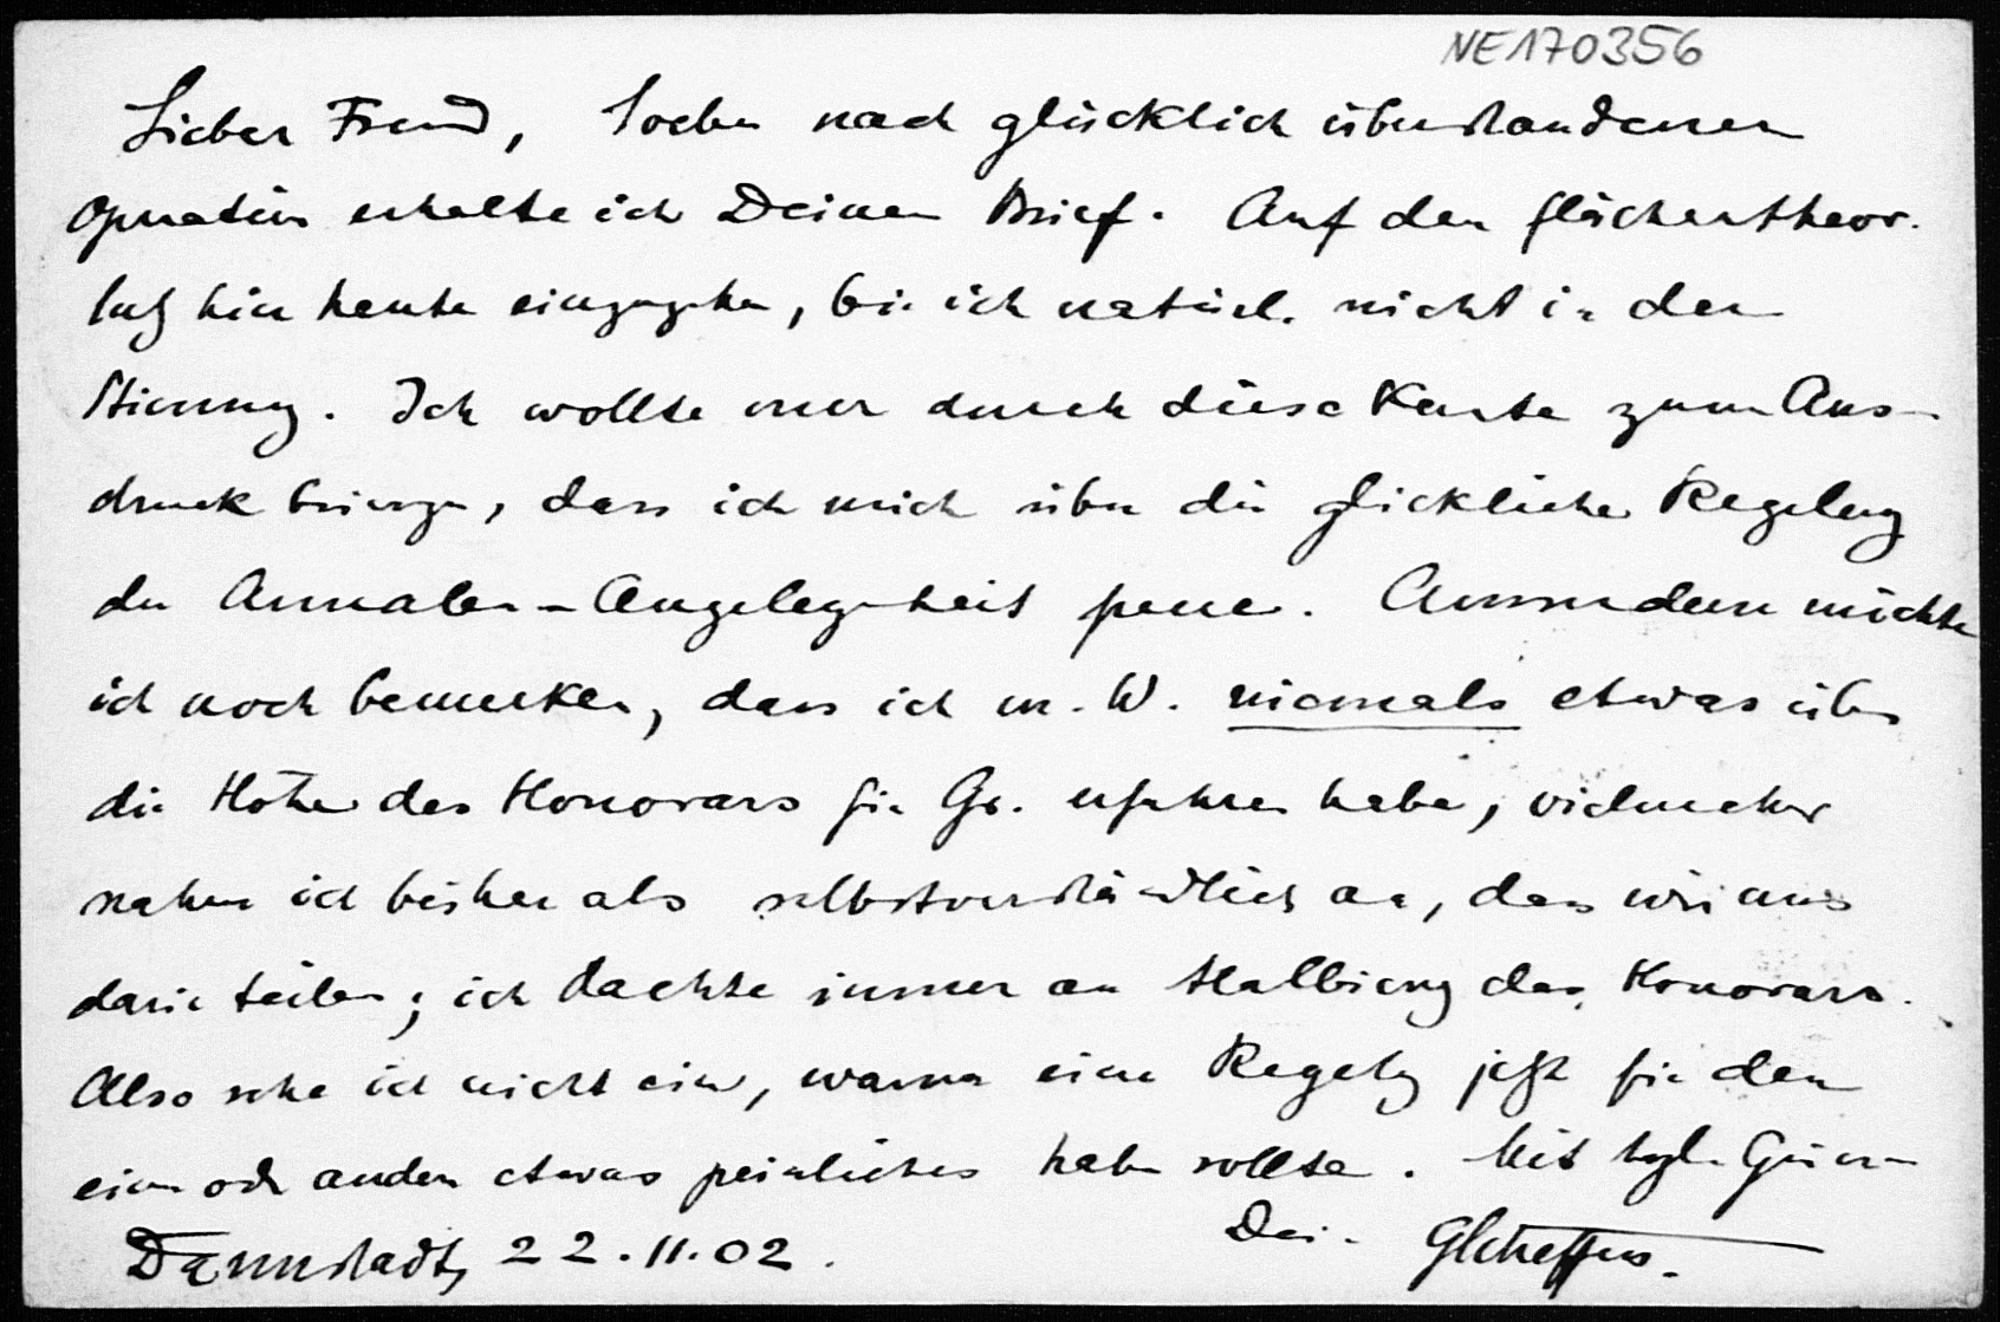 NE170356
Lieber Freund, Soeben nach glücklich überstandenen
Operation erhalte ich Deinen Brief. Auf den flächentheor.
Satz hier heute einzugehen, bin ich natürl. nicht in der
Stimmung. Ich wollte nur durch diese Karte zum Aus-
druck bringen, dass ich mich über die glückliche Regelung
der Annalen-Angelegenheit freue. Ausserdem möchte
ich noch bemerken, dass ich m. W. niemals etwas über
die Höhe des Honorars für Gr. erfahren habe, vielmehr
nahm ich bisher als selbstverständlich an, dass wir uns
darin teilen; ich dachte immer an Halbierung des Honorars.
Also sehe ich nicht ein, warum eine Regelung jetzt für den
einen oder anderen etwas peinliches haben sollte. Mit hzl. Grüssen
Dein
Darmstadt, 22.11.02.